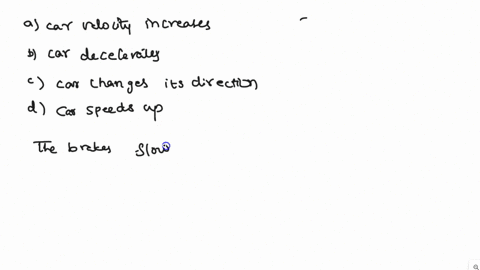 a) car velocity increases
b) car decelerates
c) car changes its direction
d) car speeds up
The brakes slow